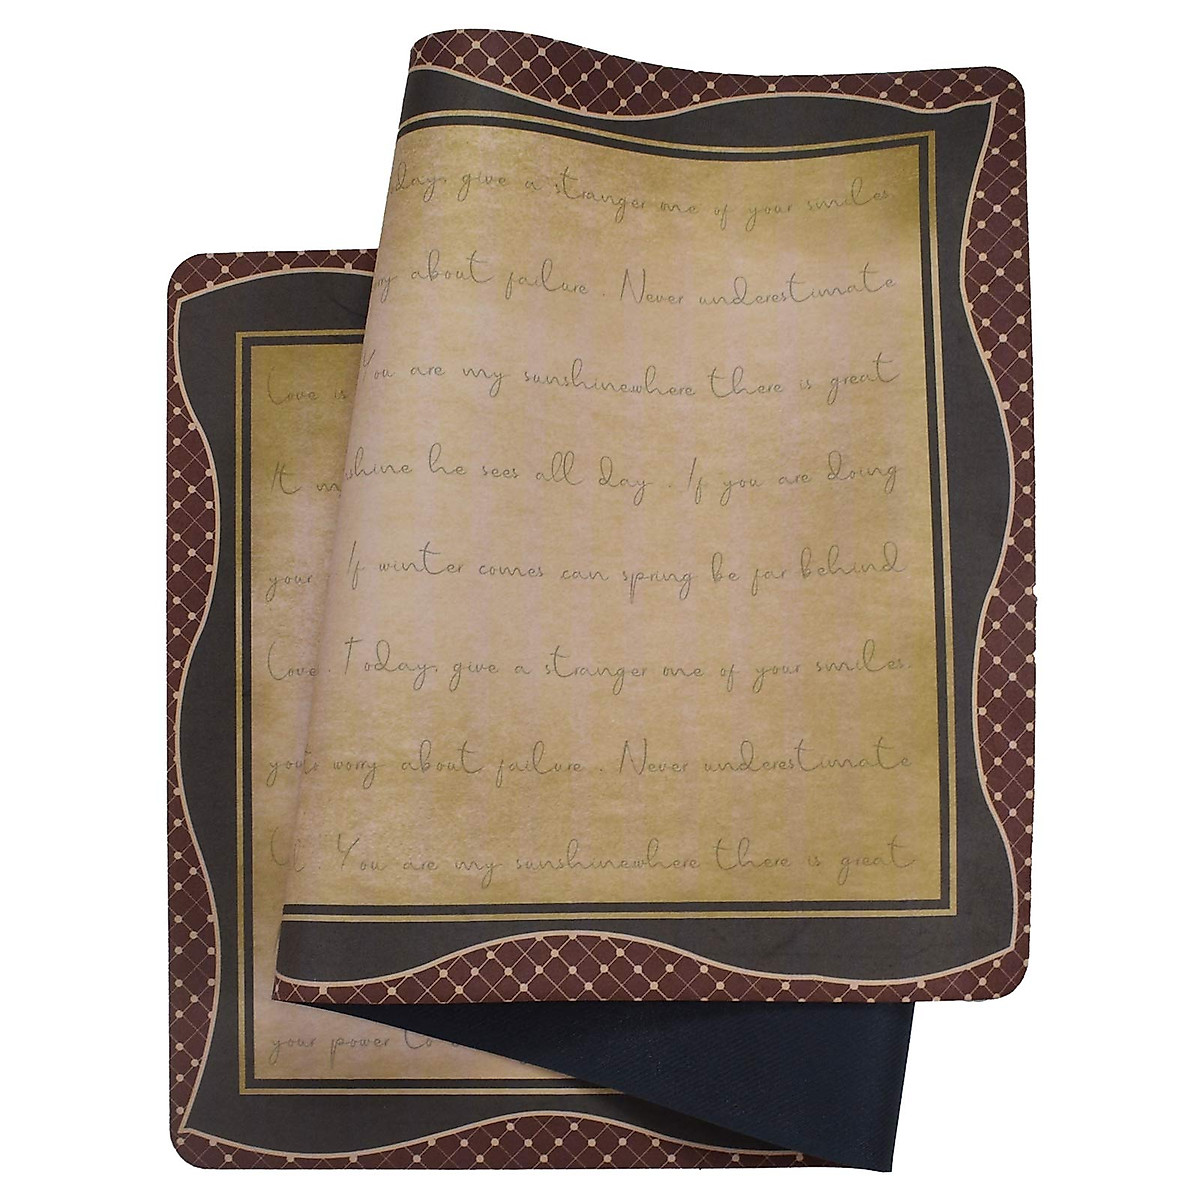 day, give a stranger one of your smiles.
worry about failure. Never underestimate
Love is You are my sunshinewhere there is great
It shine he sees all day. If you are doing
your If winter comes can spring be far behind
Love. Today, give a stranger one of your smiles.
worry about failure. Never underestimate
You are my sunshinewhere there is great
your power to